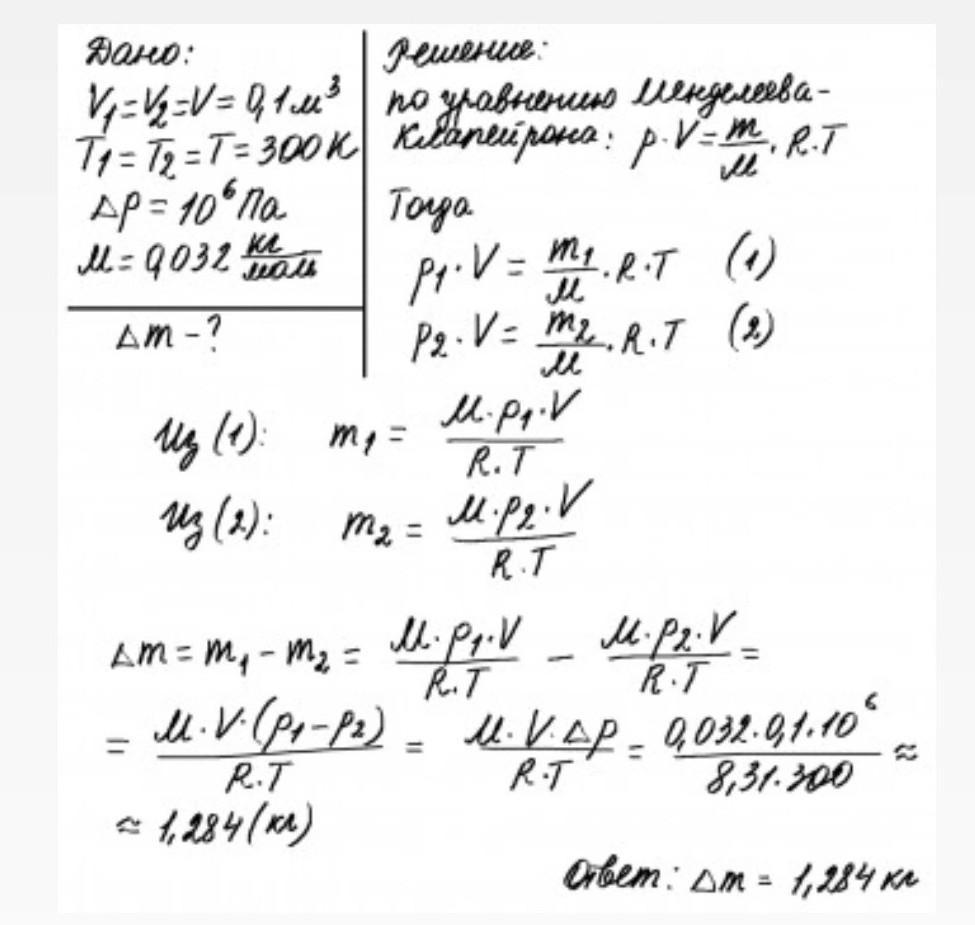 Дано:
V₁=V₂=V=0,1м³
T₁=T₂=T=300К
Δp=10⁶Па
M=0,032 кг/моль
Δm-?
Решение:
по уравнению Менделеева-
Клапейрона: p·V=m/M·R·T
Тогда
p₁·V=m₁/M·R·T (1)
p₂·V=m₂/M·R·T (2)
Из (1): m₁=M·p₁·V/R·T
Из (2): m₂=M·p₂·V/R·T
Δm=m₁-m₂=M·p₁·V/R·T-M·p₂·V/R·T=
=M·V·(p₁-p₂)/R·T=M·V·Δp/R·T=0,032·0,1·10⁶/8,31·300≈
≈1,284(кг)
Ответ: Δm=1,284кг